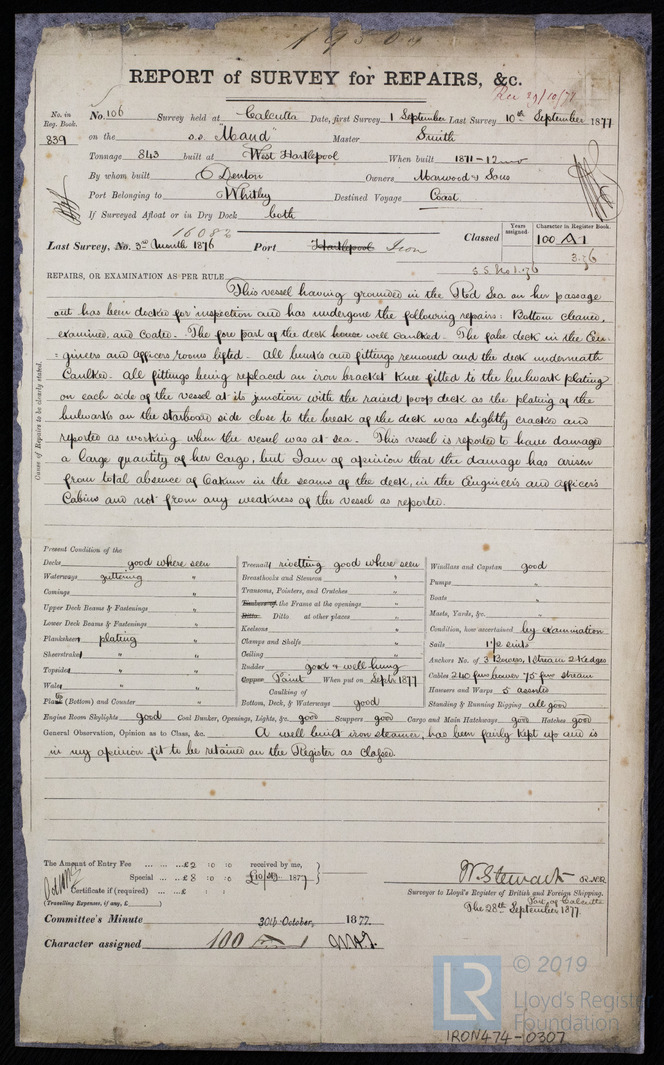 REPORT of SURVEY for REPAIRS, &c.
Rec 29/10/77
No. in Reg. Book. 839
No. 106 Survey held at Calcutta Date, first Survey 1 September Last Survey 10th September 1877
on the s.s. "Maud" Master Smith
Tonnage 843 built at West Hartlepool When built 1871-12mo
By whom built Denton Owners Marwood & Sons
Port Belonging to Whitby Destined Voyage Coast
If Surveyed Afloat or in Dry Dock both
16082
Last Survey, No. 3rd Month 1876 Port Hartlepool Iron Classed
Years assigned. Character in Register Book.
100 A 1
3.76
S.S. No 1.76
REPAIRS, OR EXAMINATION AS PER RULE
Cause of Repairs to be clearly stated.
This vessel having grounded in the Red Sea on her passage
out has been docked for inspection and has undergone the following repairs: Bottom cleaned,
examined, and coated. The fore part of the deck house well caulked. The false deck in the En-
:gineers and officers rooms lifted. All bunks and fittings removed and the deck underneath
Caulked. All fittings being replaced an iron bracket knee fitted to the bulwark plating
on each side of the vessel at its junction with the raised poop deck as the plating of the
bulwarks on the starboard side close to the break of the deck was slightly cracked and
reported as working when the vessel was at sea. This vessel is reported to have damaged
a large quantity of her Cargo, but I am of opinion that the damage has arisen
from total absence of Oakum in the seams of the deck, in the Engineer's and officer's
Cabins and not from any weakness of the vessel as reported.
Present Condition of the
Decks good where seen
Waterways guttering "
Comings "
Upper Deck Beams & Fastenings "
Lower Deck Beams & Fastenings "
Planksheers plating "
Sheerstrakes "
Topsides "
Wales "
Plank (Bottom) and Counter "
Treenails rivetting good where seen
Breasthooks and Stemson "
Transoms, Pointers, and Crutches "
Timbers of the Frame at the openings "
Ditto. Ditto at other places "
Keelsons "
Clamps and Shelfs "
Ceiling "
Rudder good & well hung
Copper Paint When put on Septr 1877
Caulking of
Bottom, Deck, & Waterways good
Windlass and Capstan good
Pumps "
Boats "
Masts, Yards, &c. "
Condition, how ascertained by examination
Sails 1 1/2 suits
Anchors No. of 3 Bowers, 1 Stream 2 Kedges
Cables 240 fms bower 75 fms stream
Hawsers and Warps 5 assorted
Standing & Running Rigging all good
Engine Room Skylights good Coal Bunker, Openings, Lights, &c. good Scuppers good Cargo and Main Hatchways good Hatches good
General Observation, Opinion as to Class, &c. A well built iron steamer, has been fairly kept up and is
in my opinion fit to be retained on the Register as Classed.
The Amount of Entry Fee £2 : 0 : 0 received by me,
Special £8 : 0 : 0 1877
Certificate (if required) £ : :
(Travelling Expenses, if any, £ )
W. Stewart R.N.R
Surveyor to Lloyd's Register of British and Foreign Shipping.
Port of Calcutta
The 28th September 1877
Committee's Minute 30th October, 1877
Character assigned 100 A 1
© 2019
LR
Lloyd's Register
Foundation
IRON474-0307